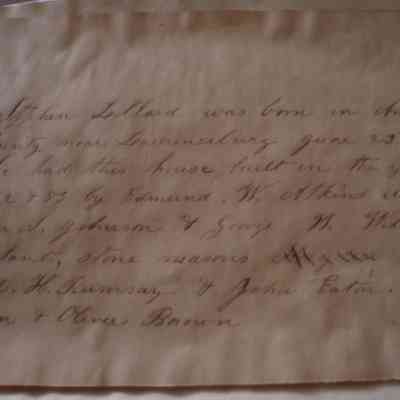 Stephen Lillard was born in
near Lawrenceburg June 23
had this house built in the
& 87 by Edmund. W. Atkins
S. Johnson & George W.
stone masons
H. Rumsay & John Eaton.
& Oliver Brown